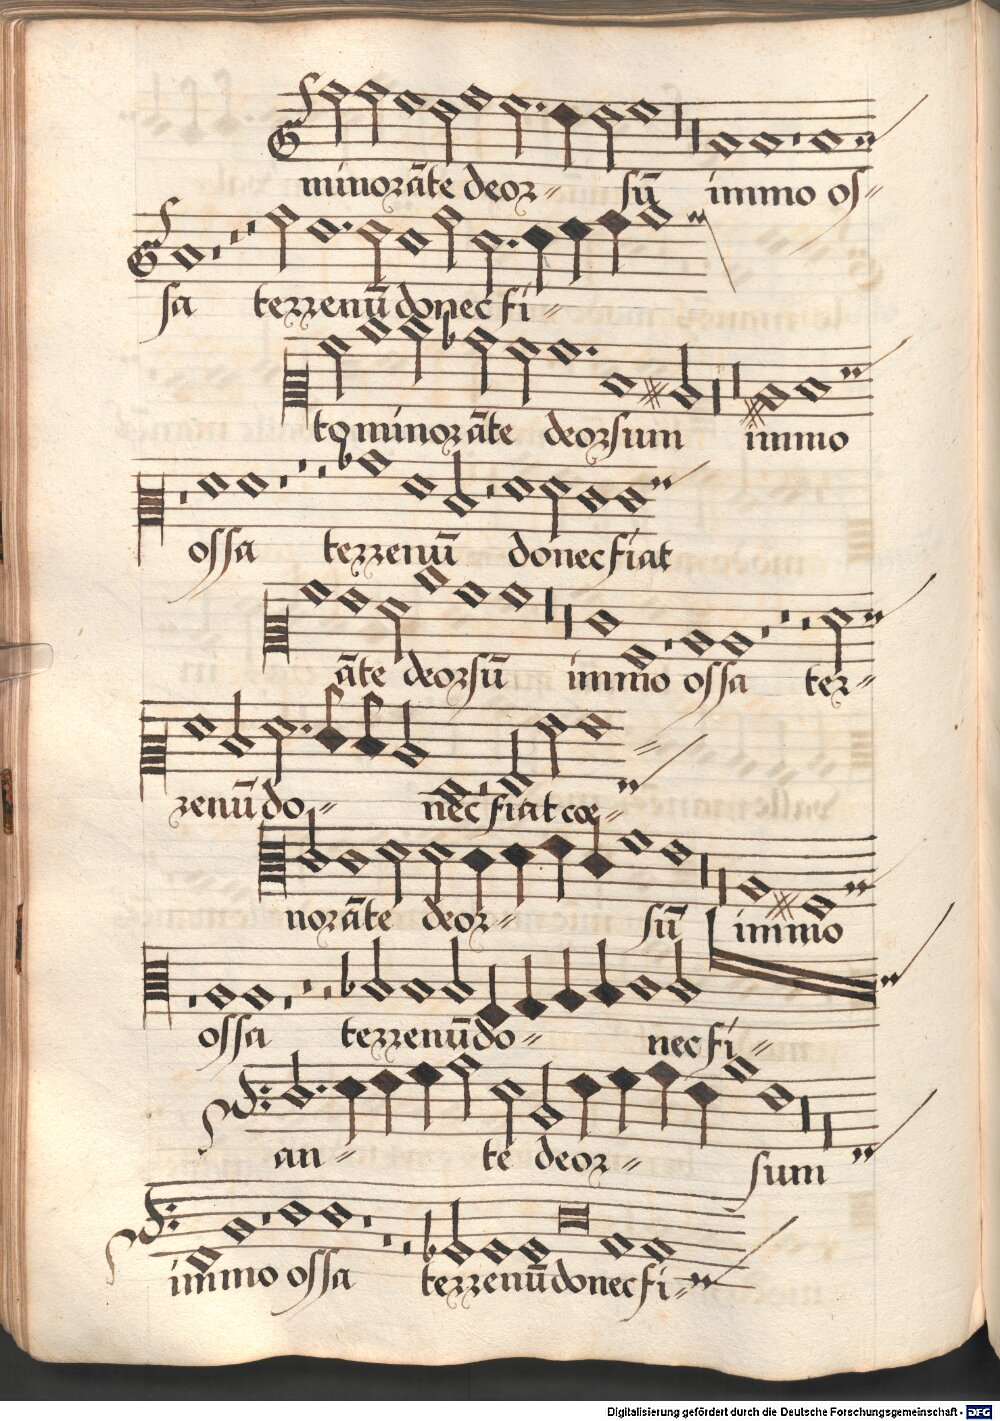 minorāte deor= sū immo os=
sa terrenū donec fi=
to minor āte deorsum immo
ossa terrenū donec fiat
āte deorsū immo ossa ter=
renū do= nec fiat cœ=
norāte deor= sū immo
ossa terrenū do= nec fi=
an= te deor= sum
immo ossa terrenū donec fi=
Digitalisierung gefördert durch die Deutsche Forschungsgemeinschaft - DFG